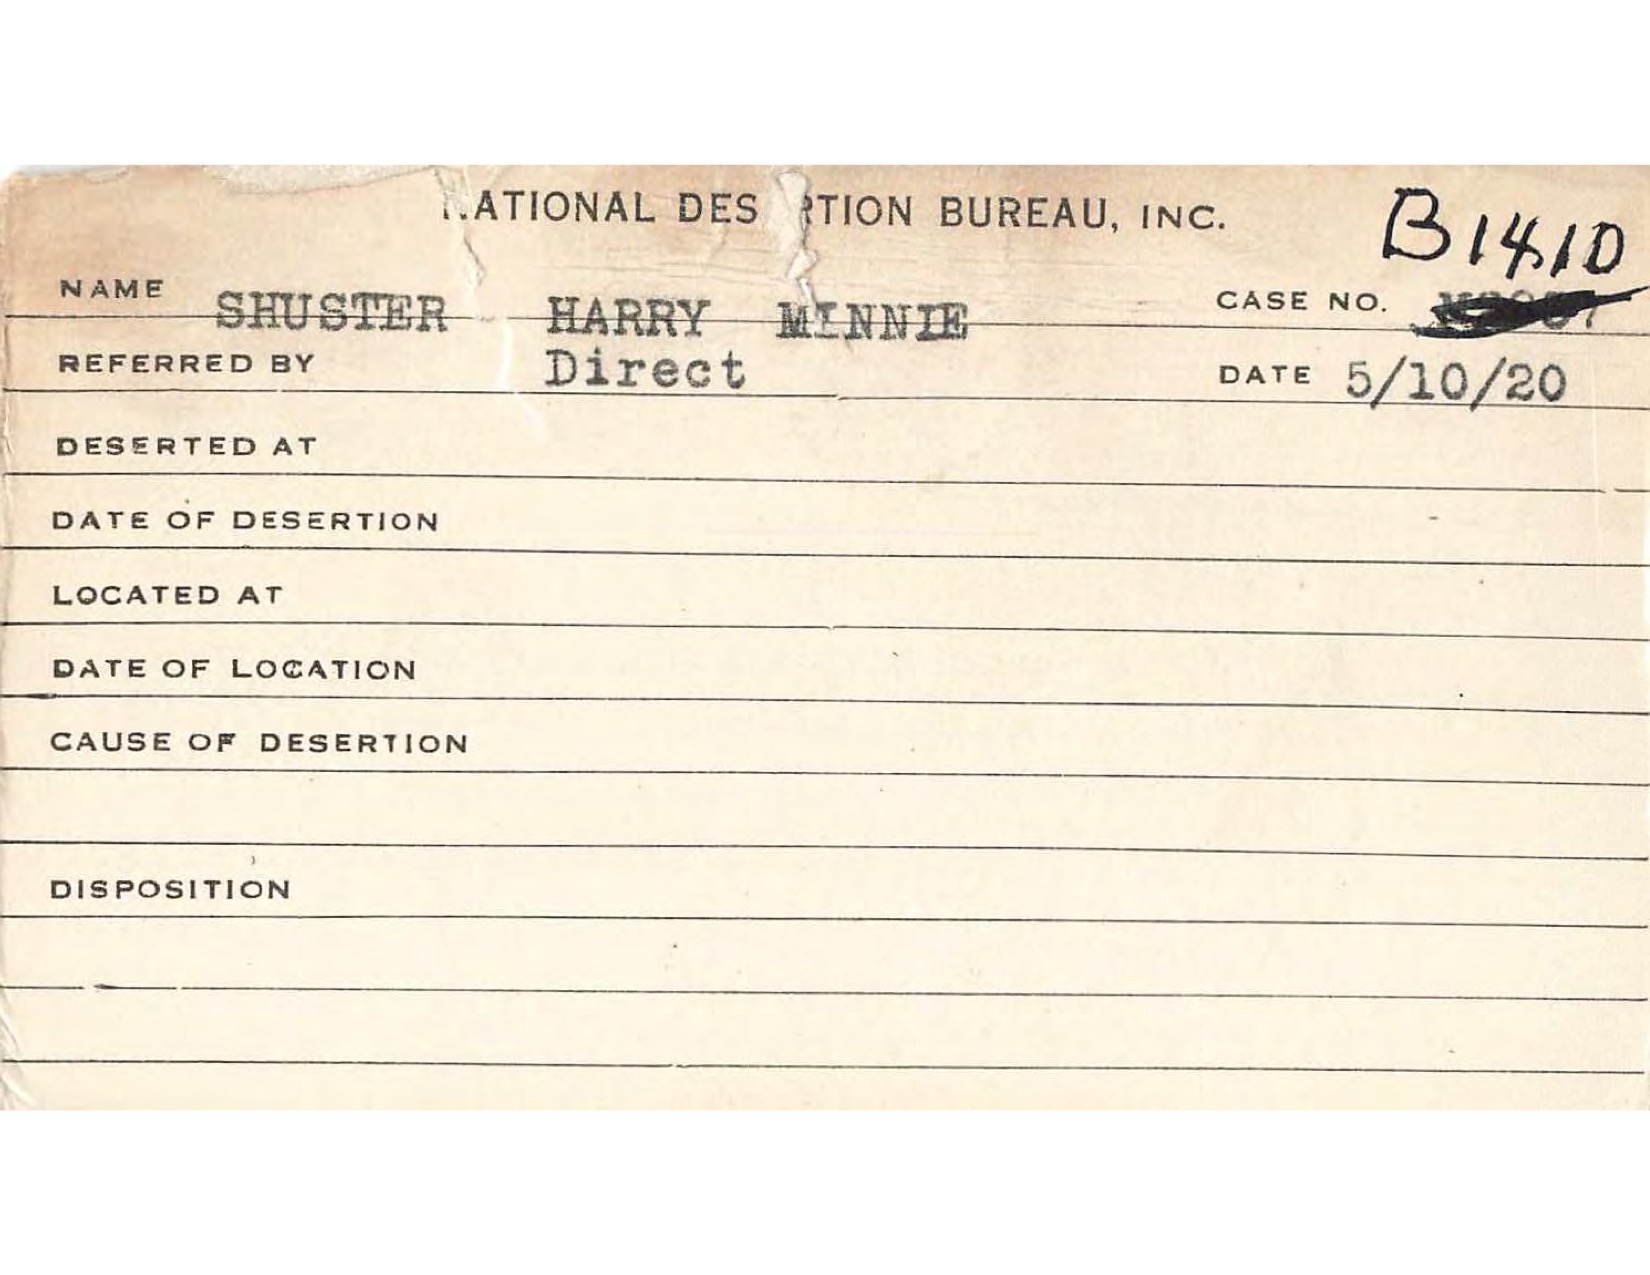 NATIONAL DES RTION BUREAU, INC.
B1410
NAME SHUSTER HARRY MINNIE CASE NO.
REFERRED BY Direct DATE 5/10/20
DESERTED AT
DATE OF DESERTION
LOCATED AT
DATE OF LOCATION
CAUSE OF DESERTION
DISPOSITION